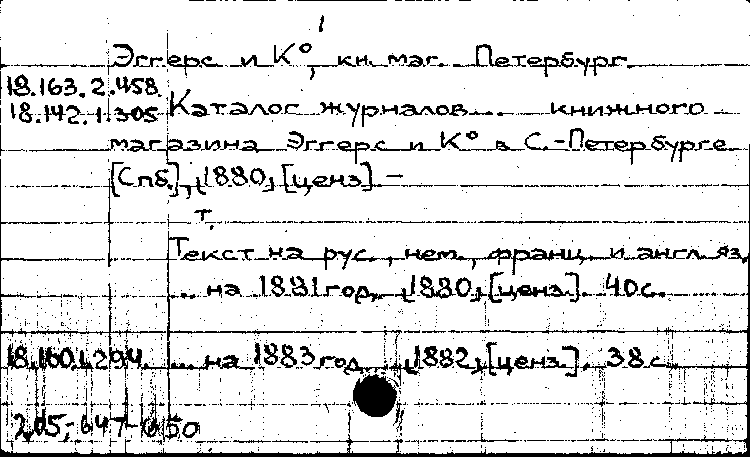 1
Эггерс и К°, кн. маг. Петербург.
18.163.2.458
18.142.1.305 Каталог журналов... книжного
магазина Эггерс и К° в С.-Петербурге
[Спб.], 1880, [ценз]. -
т.
Текст на рус., нем., франц. и англ. яз.
... на 1881 год, 1880, [ценз.]. 40 с.
18.160.1.294. ... на 1883 год 1882, [ценз.]. 38 с.
205;-647-650